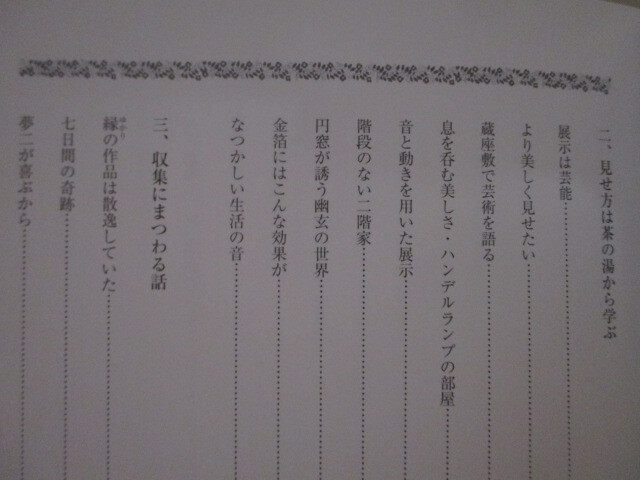 二、見せ方は茶の湯から学ぶ
展示は芸能
より美しく見せたい
蔵座敷で芸術を語る
息を呑む美しさ・ハンデルランプの部屋
音と動きを用いた展示
階段のない二階家
円窓が誘う幽玄の世界
金箔にはこんな効果が
なつかしい生活の音
三、収集にまつわる話
縁の作品は散逸していた
七日間の奇跡
夢二が喜ぶから